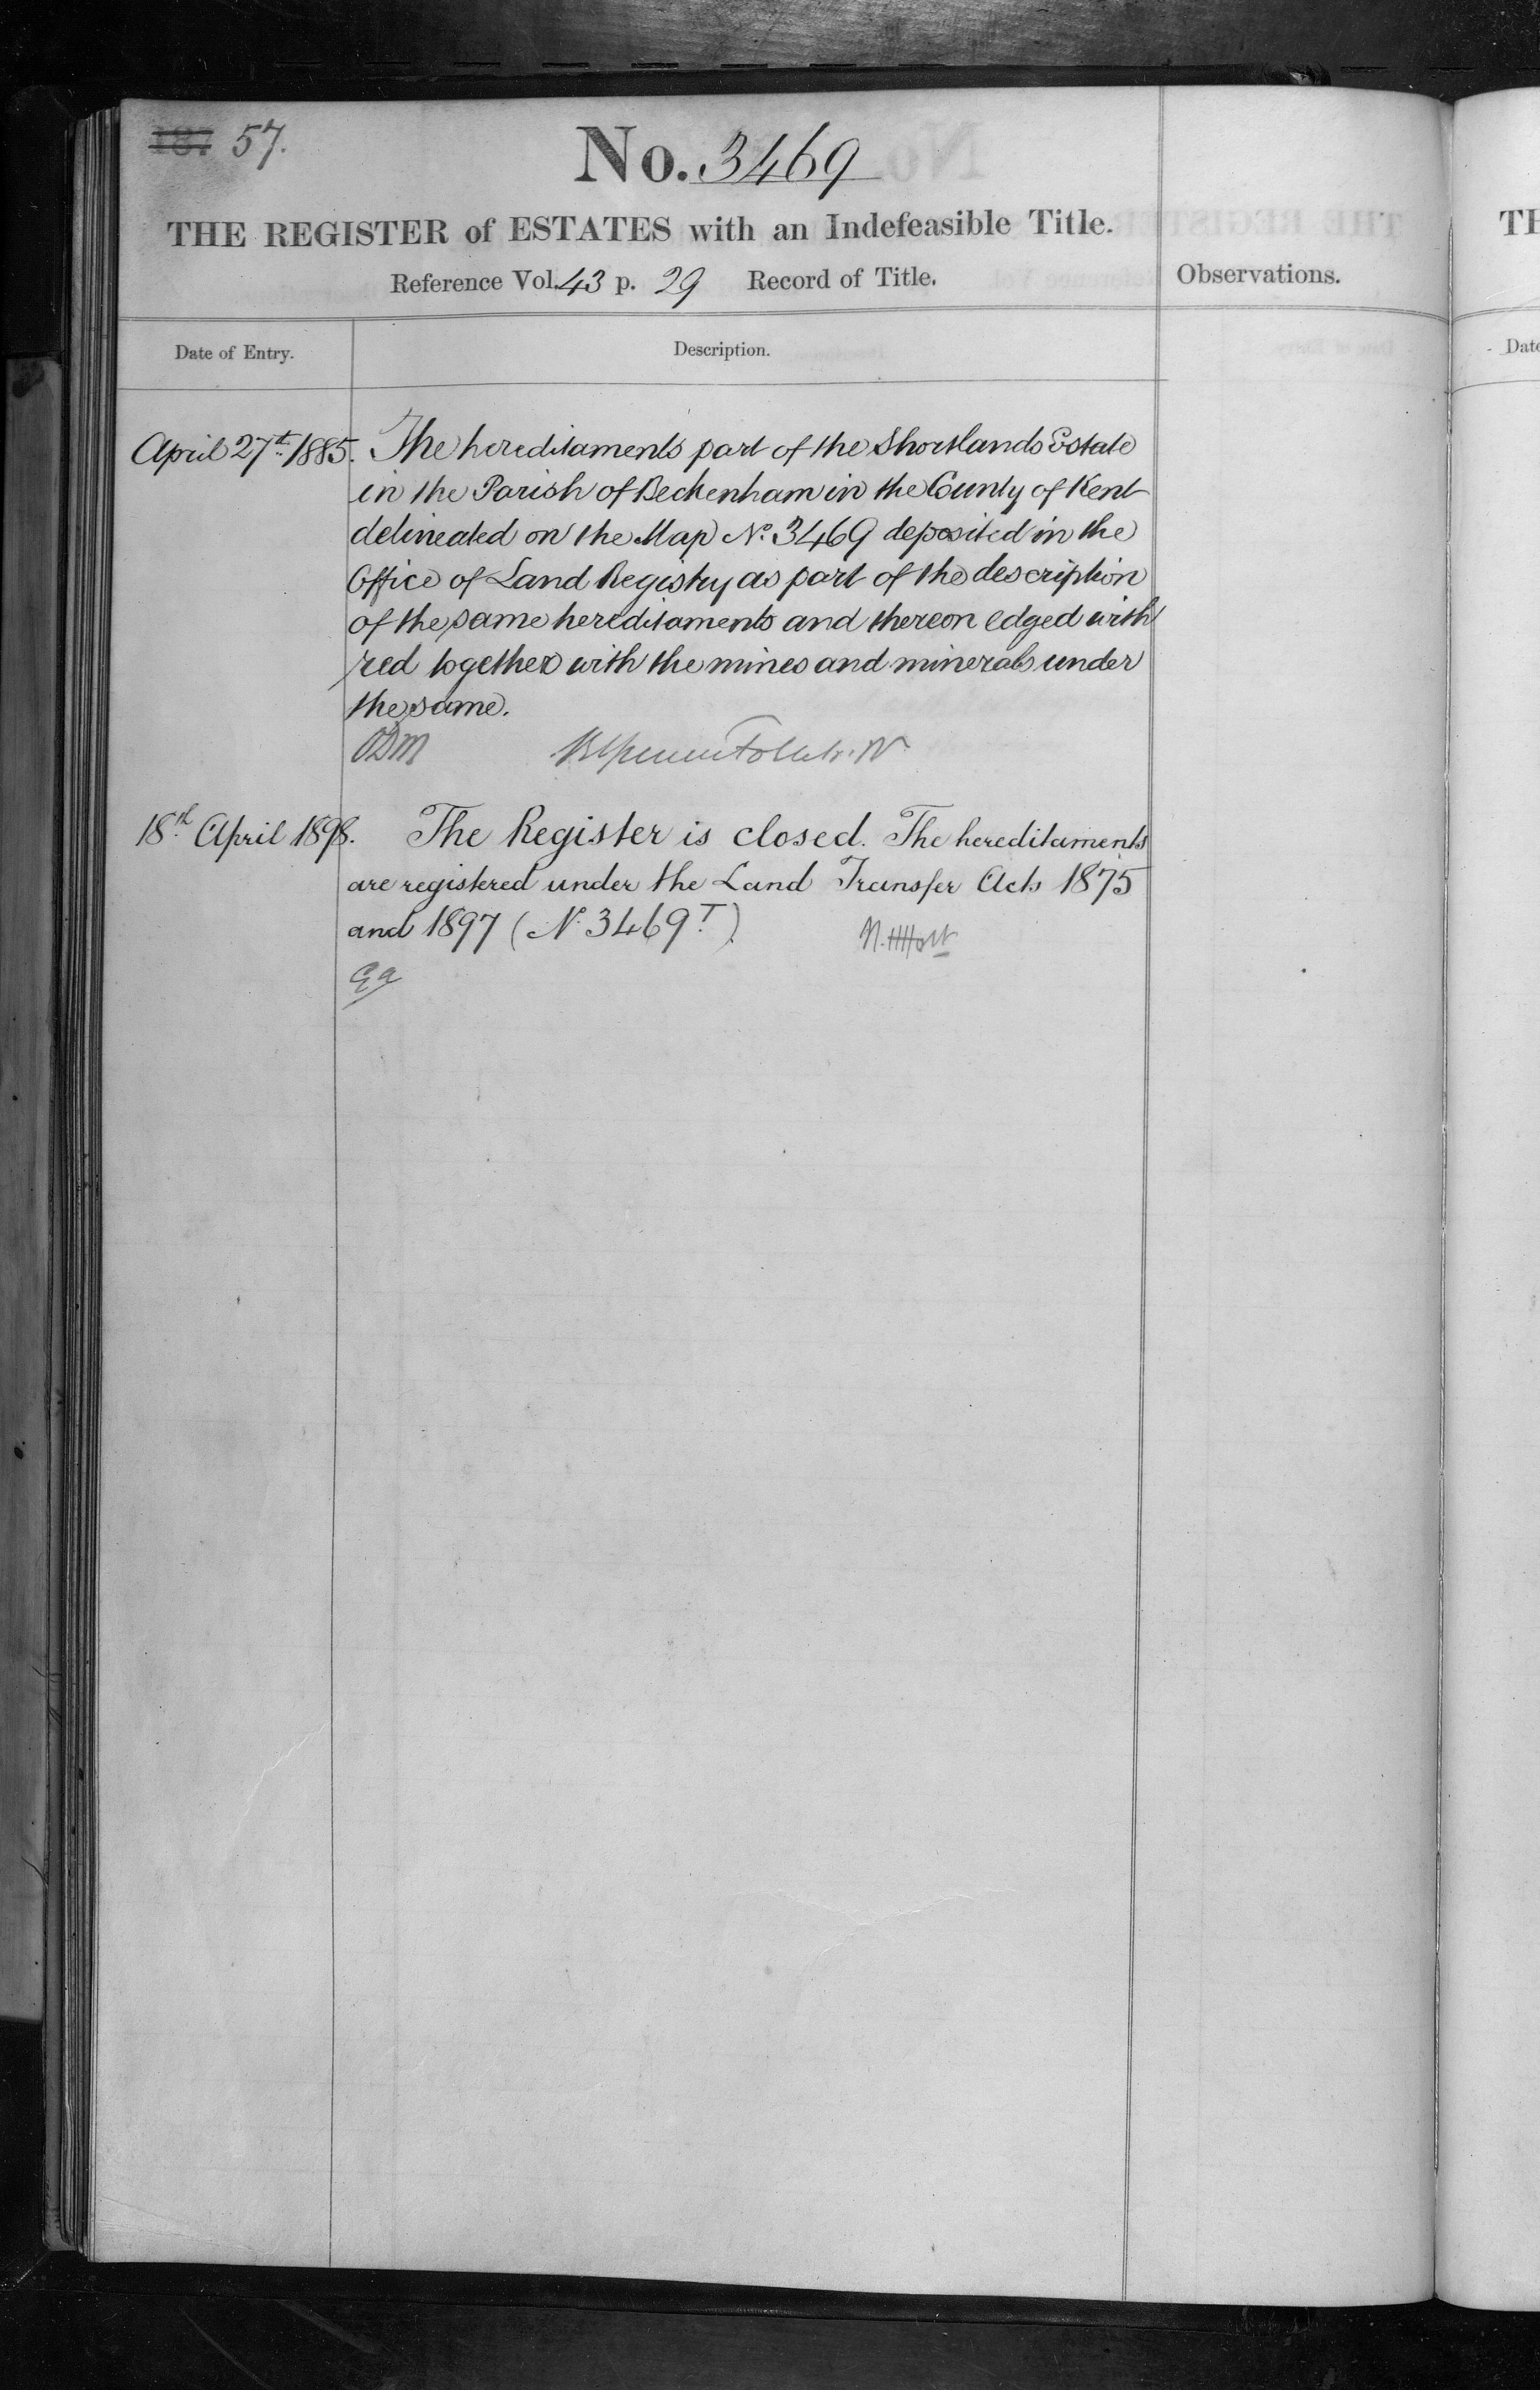 57.
No. 3469
THE REGISTER of ESTATES with an Indefeasible Title.
Reference Vol. 43 p. 29 Record of Title.
Observations.
Date of Entry.
Description.
April 27th 1885. The hereditaments part of the Shortlands Estate
in the Parish of Beckenham in the County of Kent
delineated on the Map No. 3469 deposited in the
Office of Land Registry as part of the description
of the same hereditaments and thereon edged with
red together with the mines and minerals under
the same.
ODM
18th April 1898. The Register is closed. The hereditaments
are registered under the Land Transfer Acts 1875
and 1897 (No. 3469T)
TH
Date